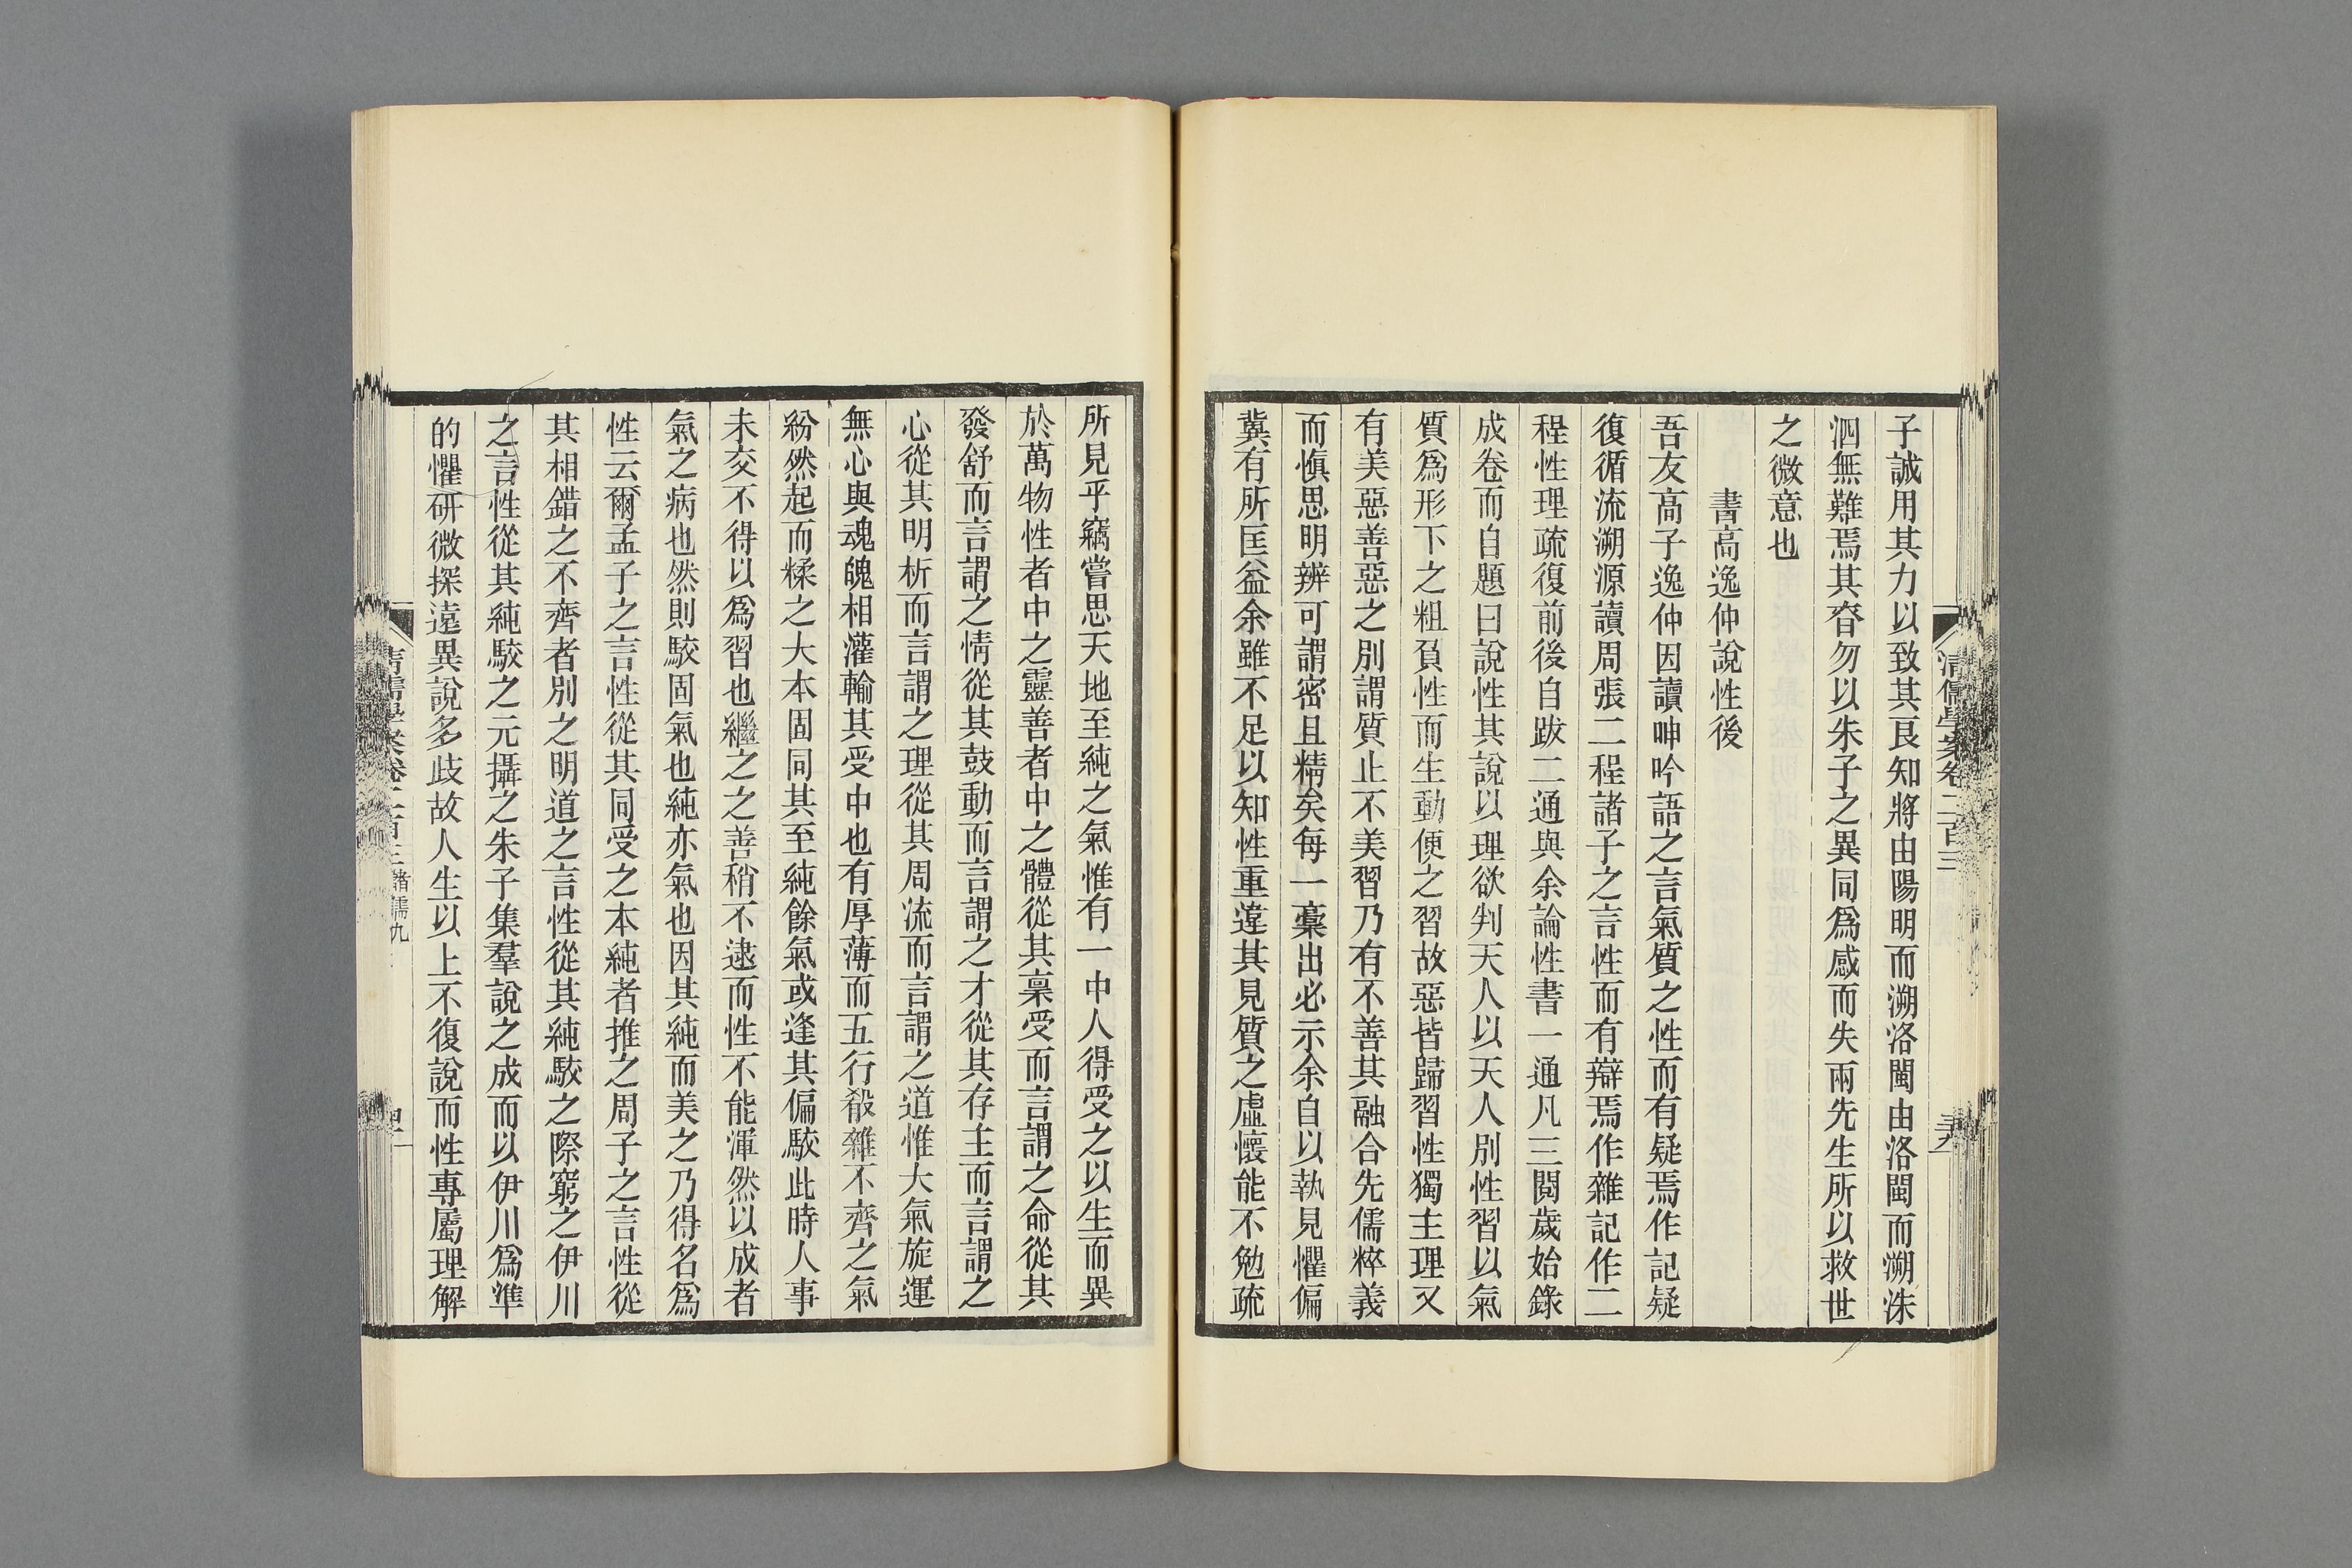 清儒學案卷二百三
子誠用其力以致其良知將由陽明而溯洛閩由洛閩而溯洙
泗無難焉其眘勿以朱子之異同爲感而失兩先生所以救世
之微意也
書高逸仲說性後
吾友高子逸仲因讀呻吟語之言氣質之性而有疑焉作記疑
復循流溯源讀周張二程諸子之言性而有辯焉作雜記作二
程性理疏復前後自跋二通與余論性書一通凡三閱歲始錄
成卷而自題曰說性其說以理欲判天人以天人別性習以氣
質爲形下之粗負性而生動便之習故惡皆歸習性獨主理又
有美惡善惡之別謂質止不美習乃有不善其融合先儒粹義
而愼思明辨可謂密且精矣每一藁出必示余自以執見懼偏
冀有所匡益余雖不足以知性重違其見質之虛懷能不勉疏
所見乎竊嘗思天地至純之氣惟有一中人得受之以生而異
於萬物性者中之靈善者中之體從其稟受而言謂之命從其
發舒而言謂之情從其鼓動而言謂之才從其存主而言謂之
心從其明析而言謂之理從其周流而言謂之道惟大氣旋運
無心與魂魄相灌輸其受中也有厚薄而五行殽雜不齊之氣
紛然起而糅之大本固同其至純餘氣或逢其偏駮此時人事
未交不得以爲習也繼之之善稍不逮而性不能渾然以成者
氣之病也然則駮固氣也純亦氣也因其純而美之乃得名爲
性云爾孟子之言性從其同受之本純者推之周子之言性從
其相錯之不齊者別之明道之言性從其純駮之際窮之伊川
之言性從其純駮之元攝之朱子集羣說之成而以伊川爲準
的懼研微探遠異說多歧故人生以上不復說而性專屬理解
清儒學案卷二百三諸儒九